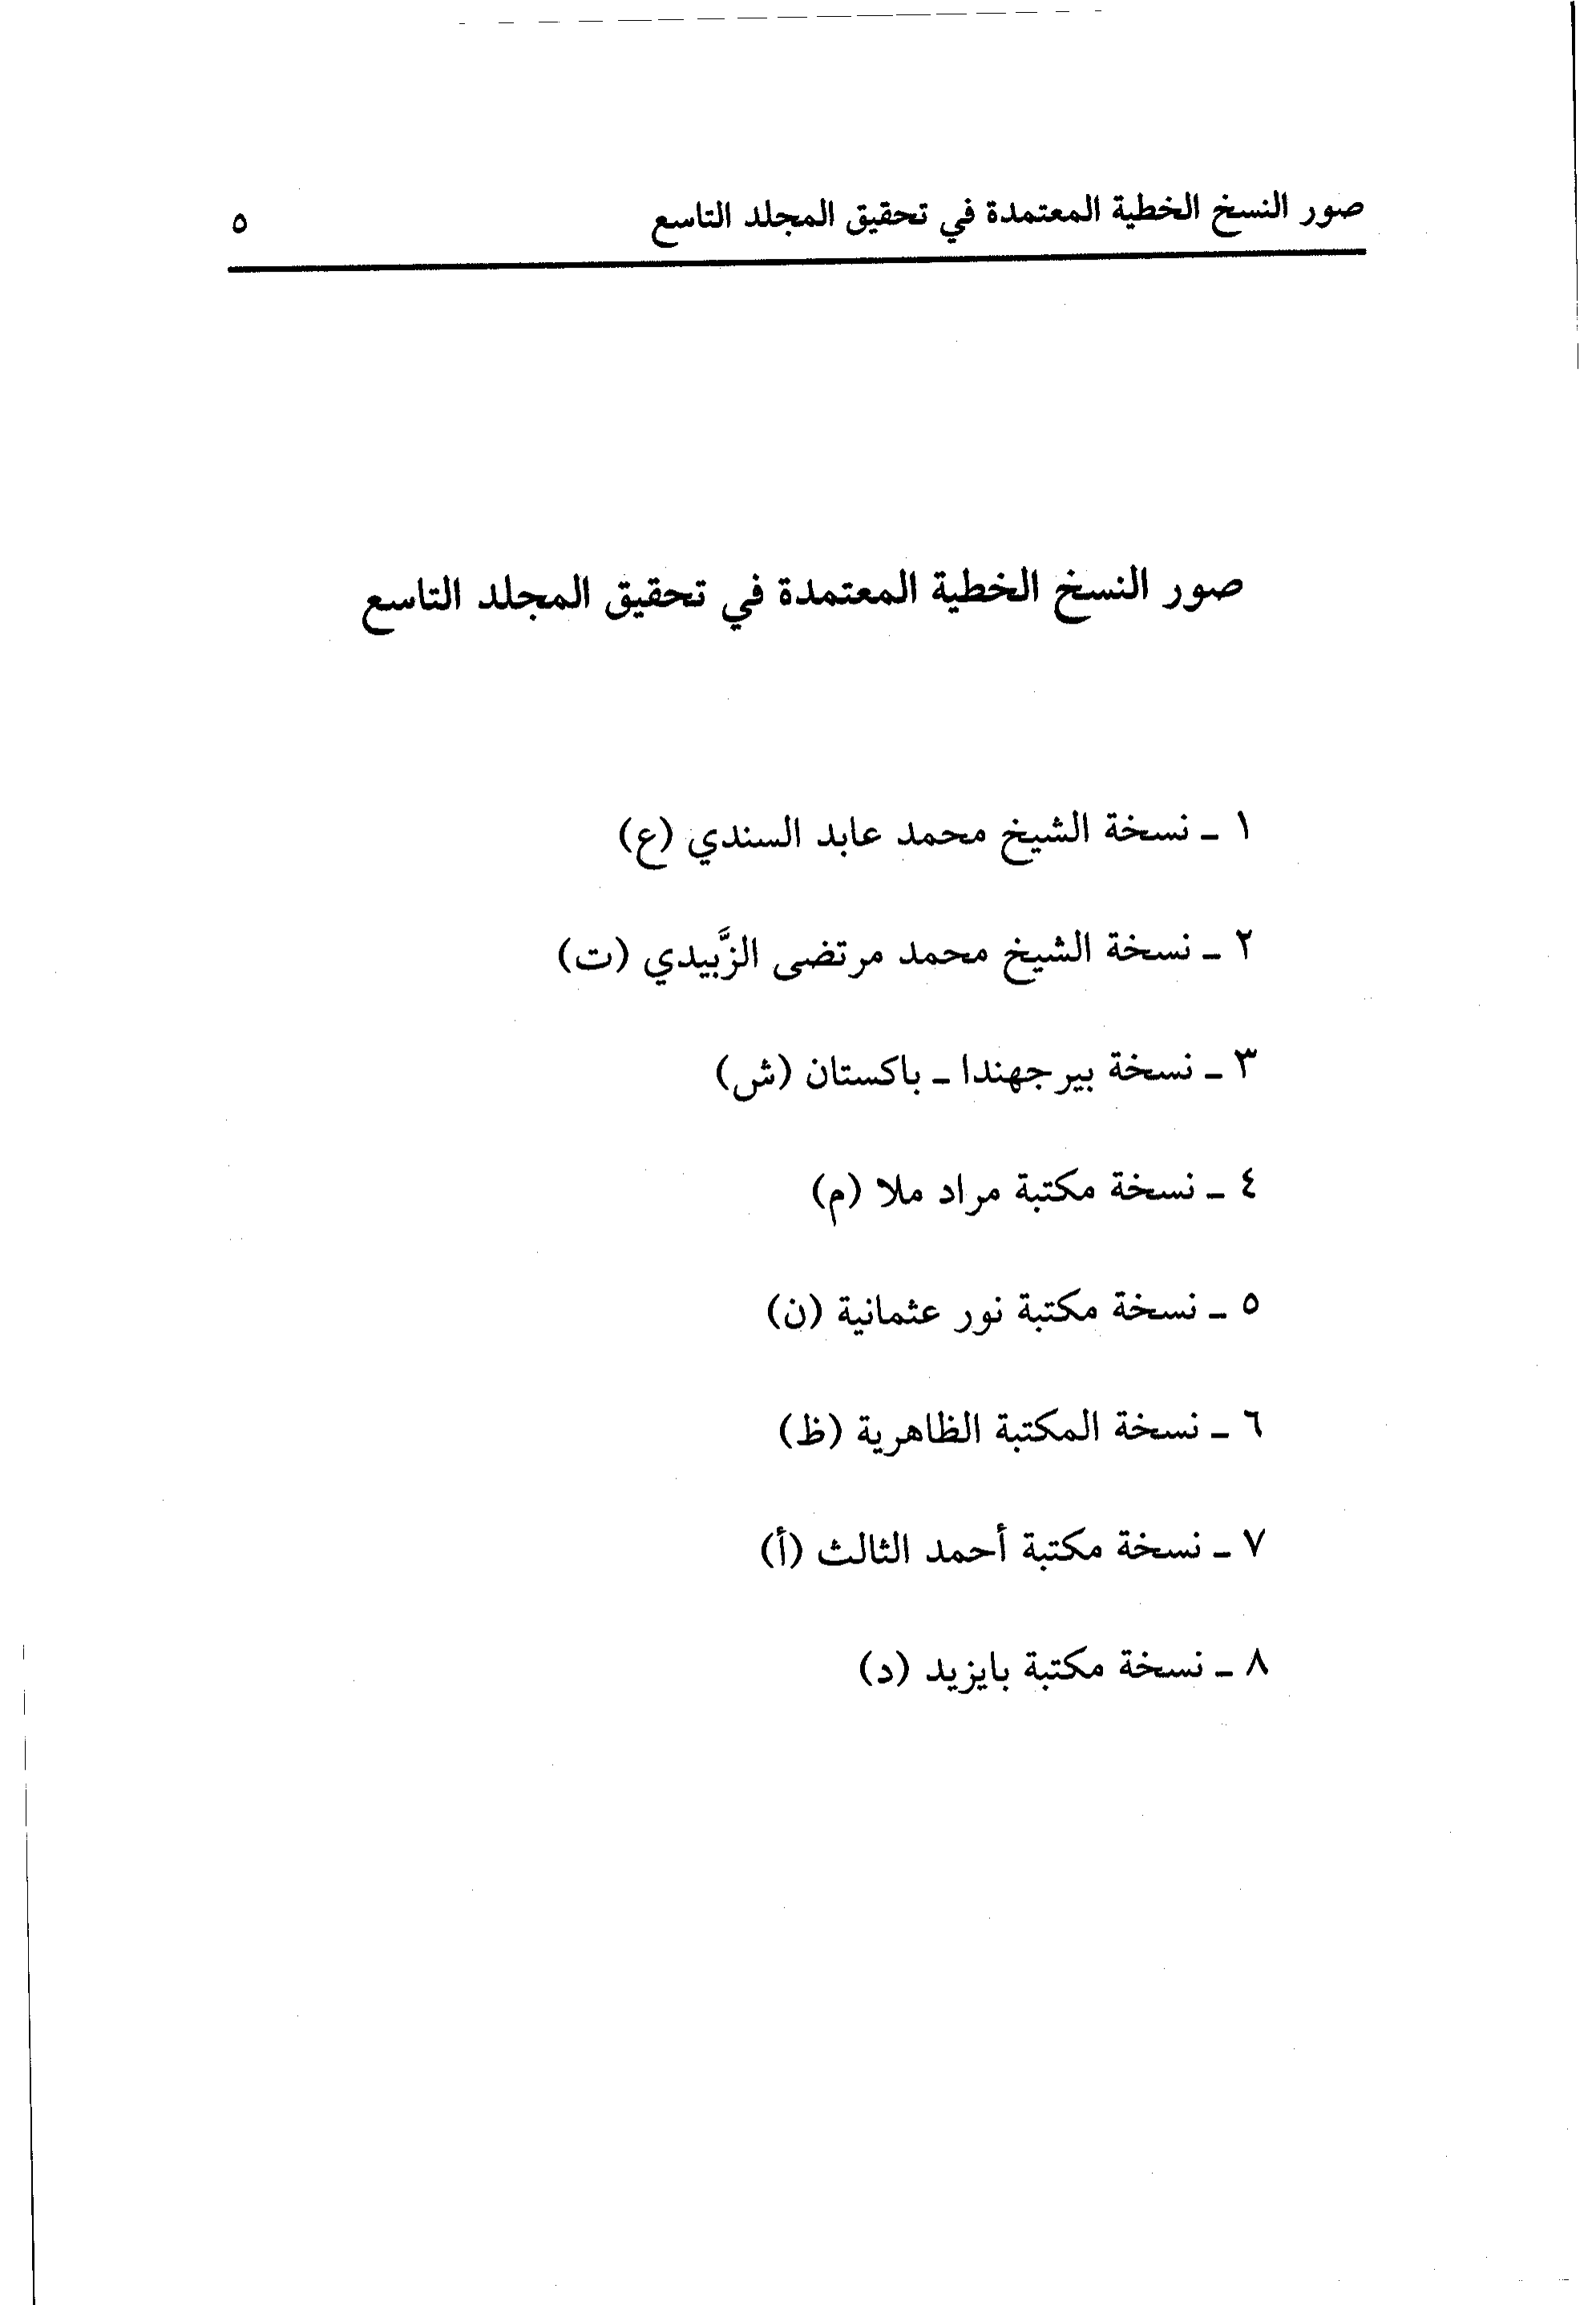 صور النسخ الخطية المعتمدة في تحقيق المجلد التاسع ٥
صور النسخ الخطية المعتمدة في تحقيق المجلد التاسع
١ ـ نسخة الشيخ محمد عابد السندي (ع)
٢ ـ نسخة الشيخ محمد مرتضى الزَّبيدي (ت)
٣ ـ نسخة بيرجهندا ـ باكستان (ش)
٤ ـ نسخة مكتبة مراد ملا (م)
٥ ـ نسخة مكتبة نور عثمانية (ن)
٦ ـ نسخة المكتبة الظاهرية (ظ)
٧ ـ نسخة مكتبة أحمد الثالث (أ)
٨ ـ نسخة مكتبة بايزيد (د)